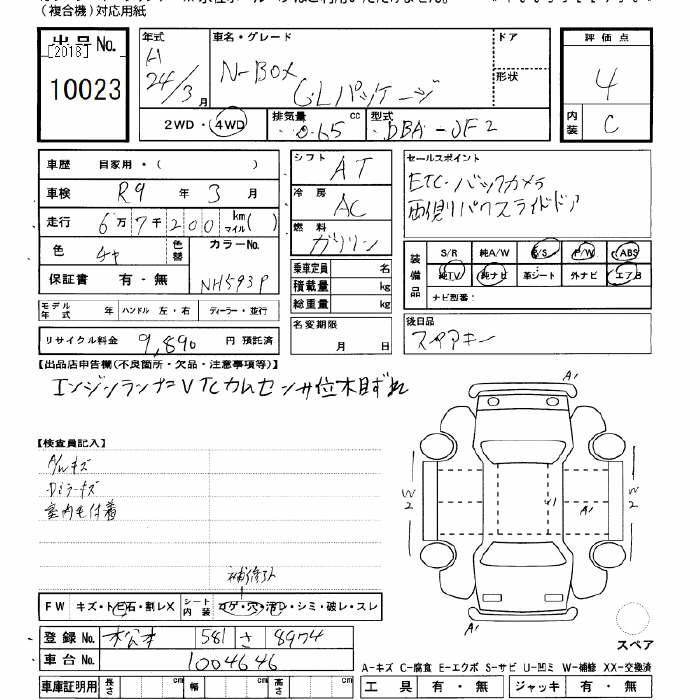 (複合機)対応用紙
出品 No.
[2013]
10023
年式
H
24/3 月
車名・グレード
N-BOX
GLパッケージ
ドア
形状
2WD・4WD
排気量 0.65 cc
型式 DBA-JF2
評価点
4
内装 C
車歴 自家用・( )
車検 R9 年 3 月
走行 6万7千200 km マイル( )
色 色替 カラーNo.
NH593P
保証書 有・無
モデル年式 年 ハンドル 左・右 ディーラー・並行
リサイクル料金 9,890 円 預託済
シフト AT
冷房 AC
燃料 ガソリン
乗車定員 名
積載量 kg
総重量 kg
名変期限
月 日
セールスポイント
ETC・バックカメラ
両側パワスライドドア
装備品
S/R 純A/W P/S P/W ABS
純TV 純ナビ 革シート 外ナビ エアB
ナビ型番:
後日品
スペアキー
【出品店申告欄(不良箇所・欠品・注意事項等)】
エンジンランプ=VTCカムセンサ位相ずれ
【検査員記入】
A/Wキズ
Dミラーキズ
室内毛付着
補修跡
FW キズ・トビ石・割レX シート内装 コゲ・穴・汚レ・シミ・破レ・スレ
登録 No. 松本 581 さ 8974
車台 No. 1004646
車庫証明用 長さ cm 幅 cm 高さ cm
A1
W2
A1
W2
A1
スペア
A-キズ C-腐食 E-エクボ S-サビ U-凹ミ W-補修 XX-交換済
工具 有・無 ジャッキ 有・無